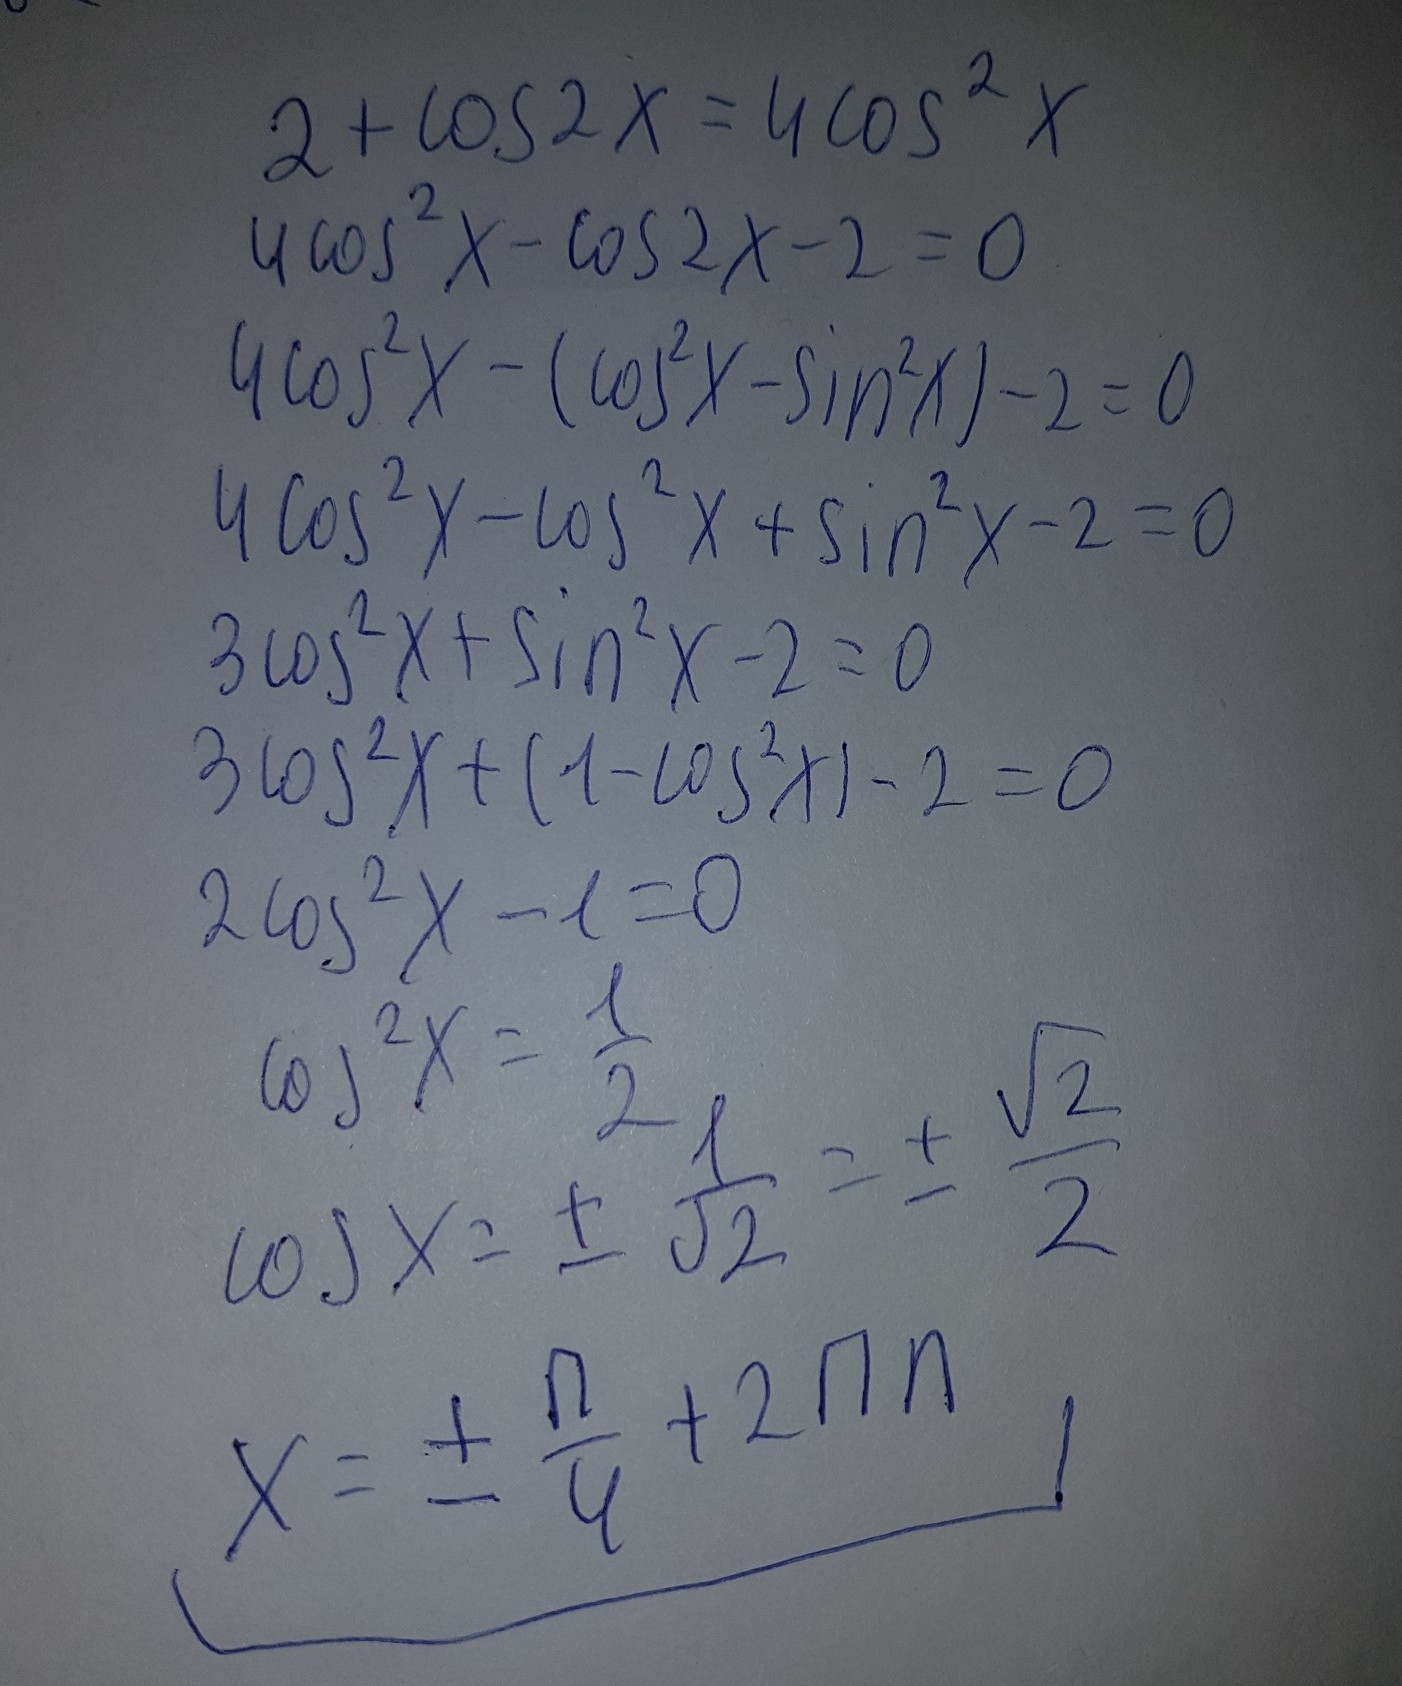 2+cos2x=4cos²x
4cos²x-cos2x-2=0
4cos²x-(cos²x-sin²x)-2=0
4cos²x-cos²x+sin²x-2=0
3cos²x+sin²x-2=0
3cos²x+(1-cos²x)-2=0
2cos²x-1=0
cos²x=1/2
cosx=±1/√2=±√2/2
x=±π/4+2πn